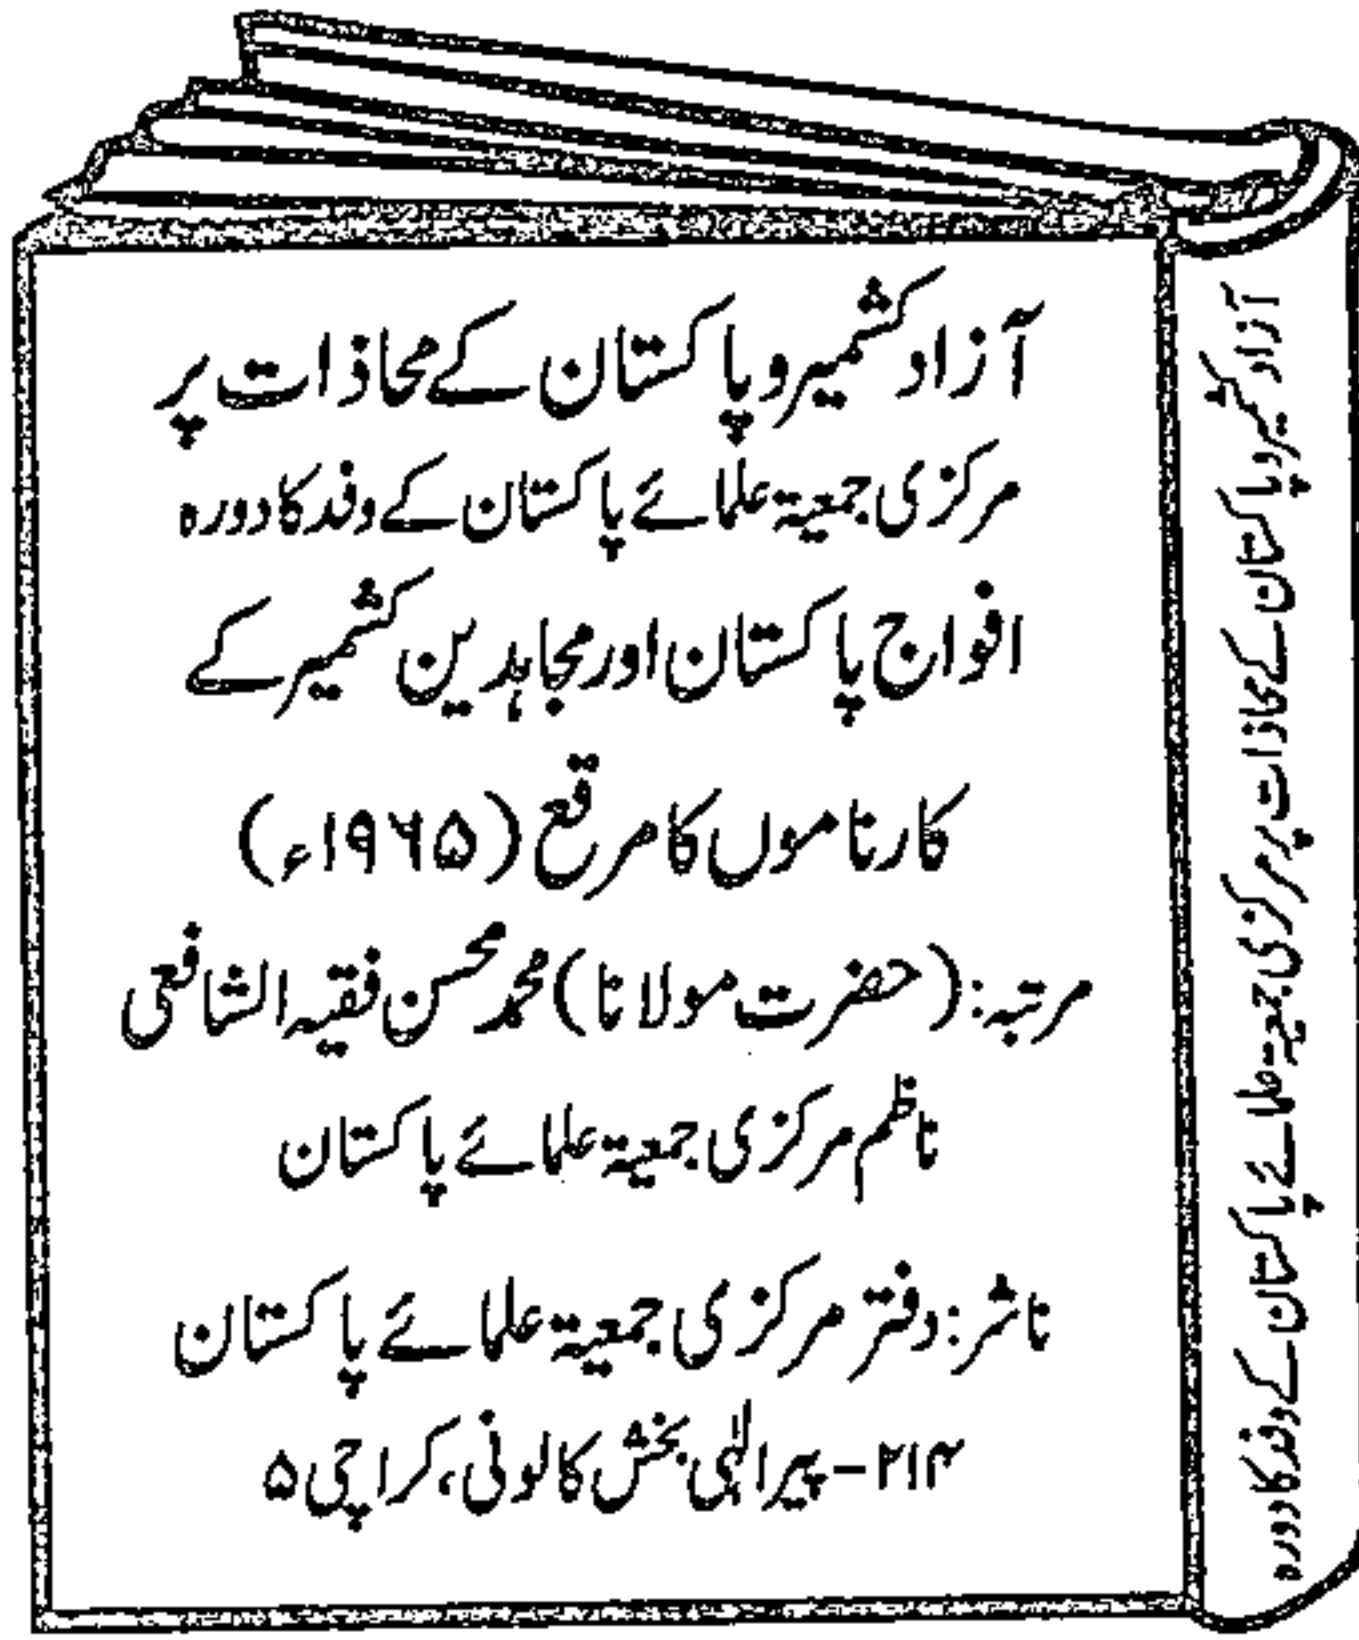 آزاد کشمیر و پاکستان کے محاذات پر
مرکزی جمعیۃ علمائے پاکستان کے وفد کا دورہ
افواج پاکستان اور مجاہدین کشمیر کے
کارناموں کا مرقع (۱۹۶۵ء)
مرتبہ: (حضرت مولانا) محمد محسن فقیہ الشافعی
ناظم مرکزی جمعیۃ علمائے پاکستان
ناشر: دفتر مرکزی جمعیۃ علمائے پاکستان
۲۱۴- پیر الٰہی بخش کالونی، کراچی ۵
آزاد کشمیر و پاکستان کے محاذات پر مرکزی جمعیۃ علمائے پاکستان کے وفد کا دورہ